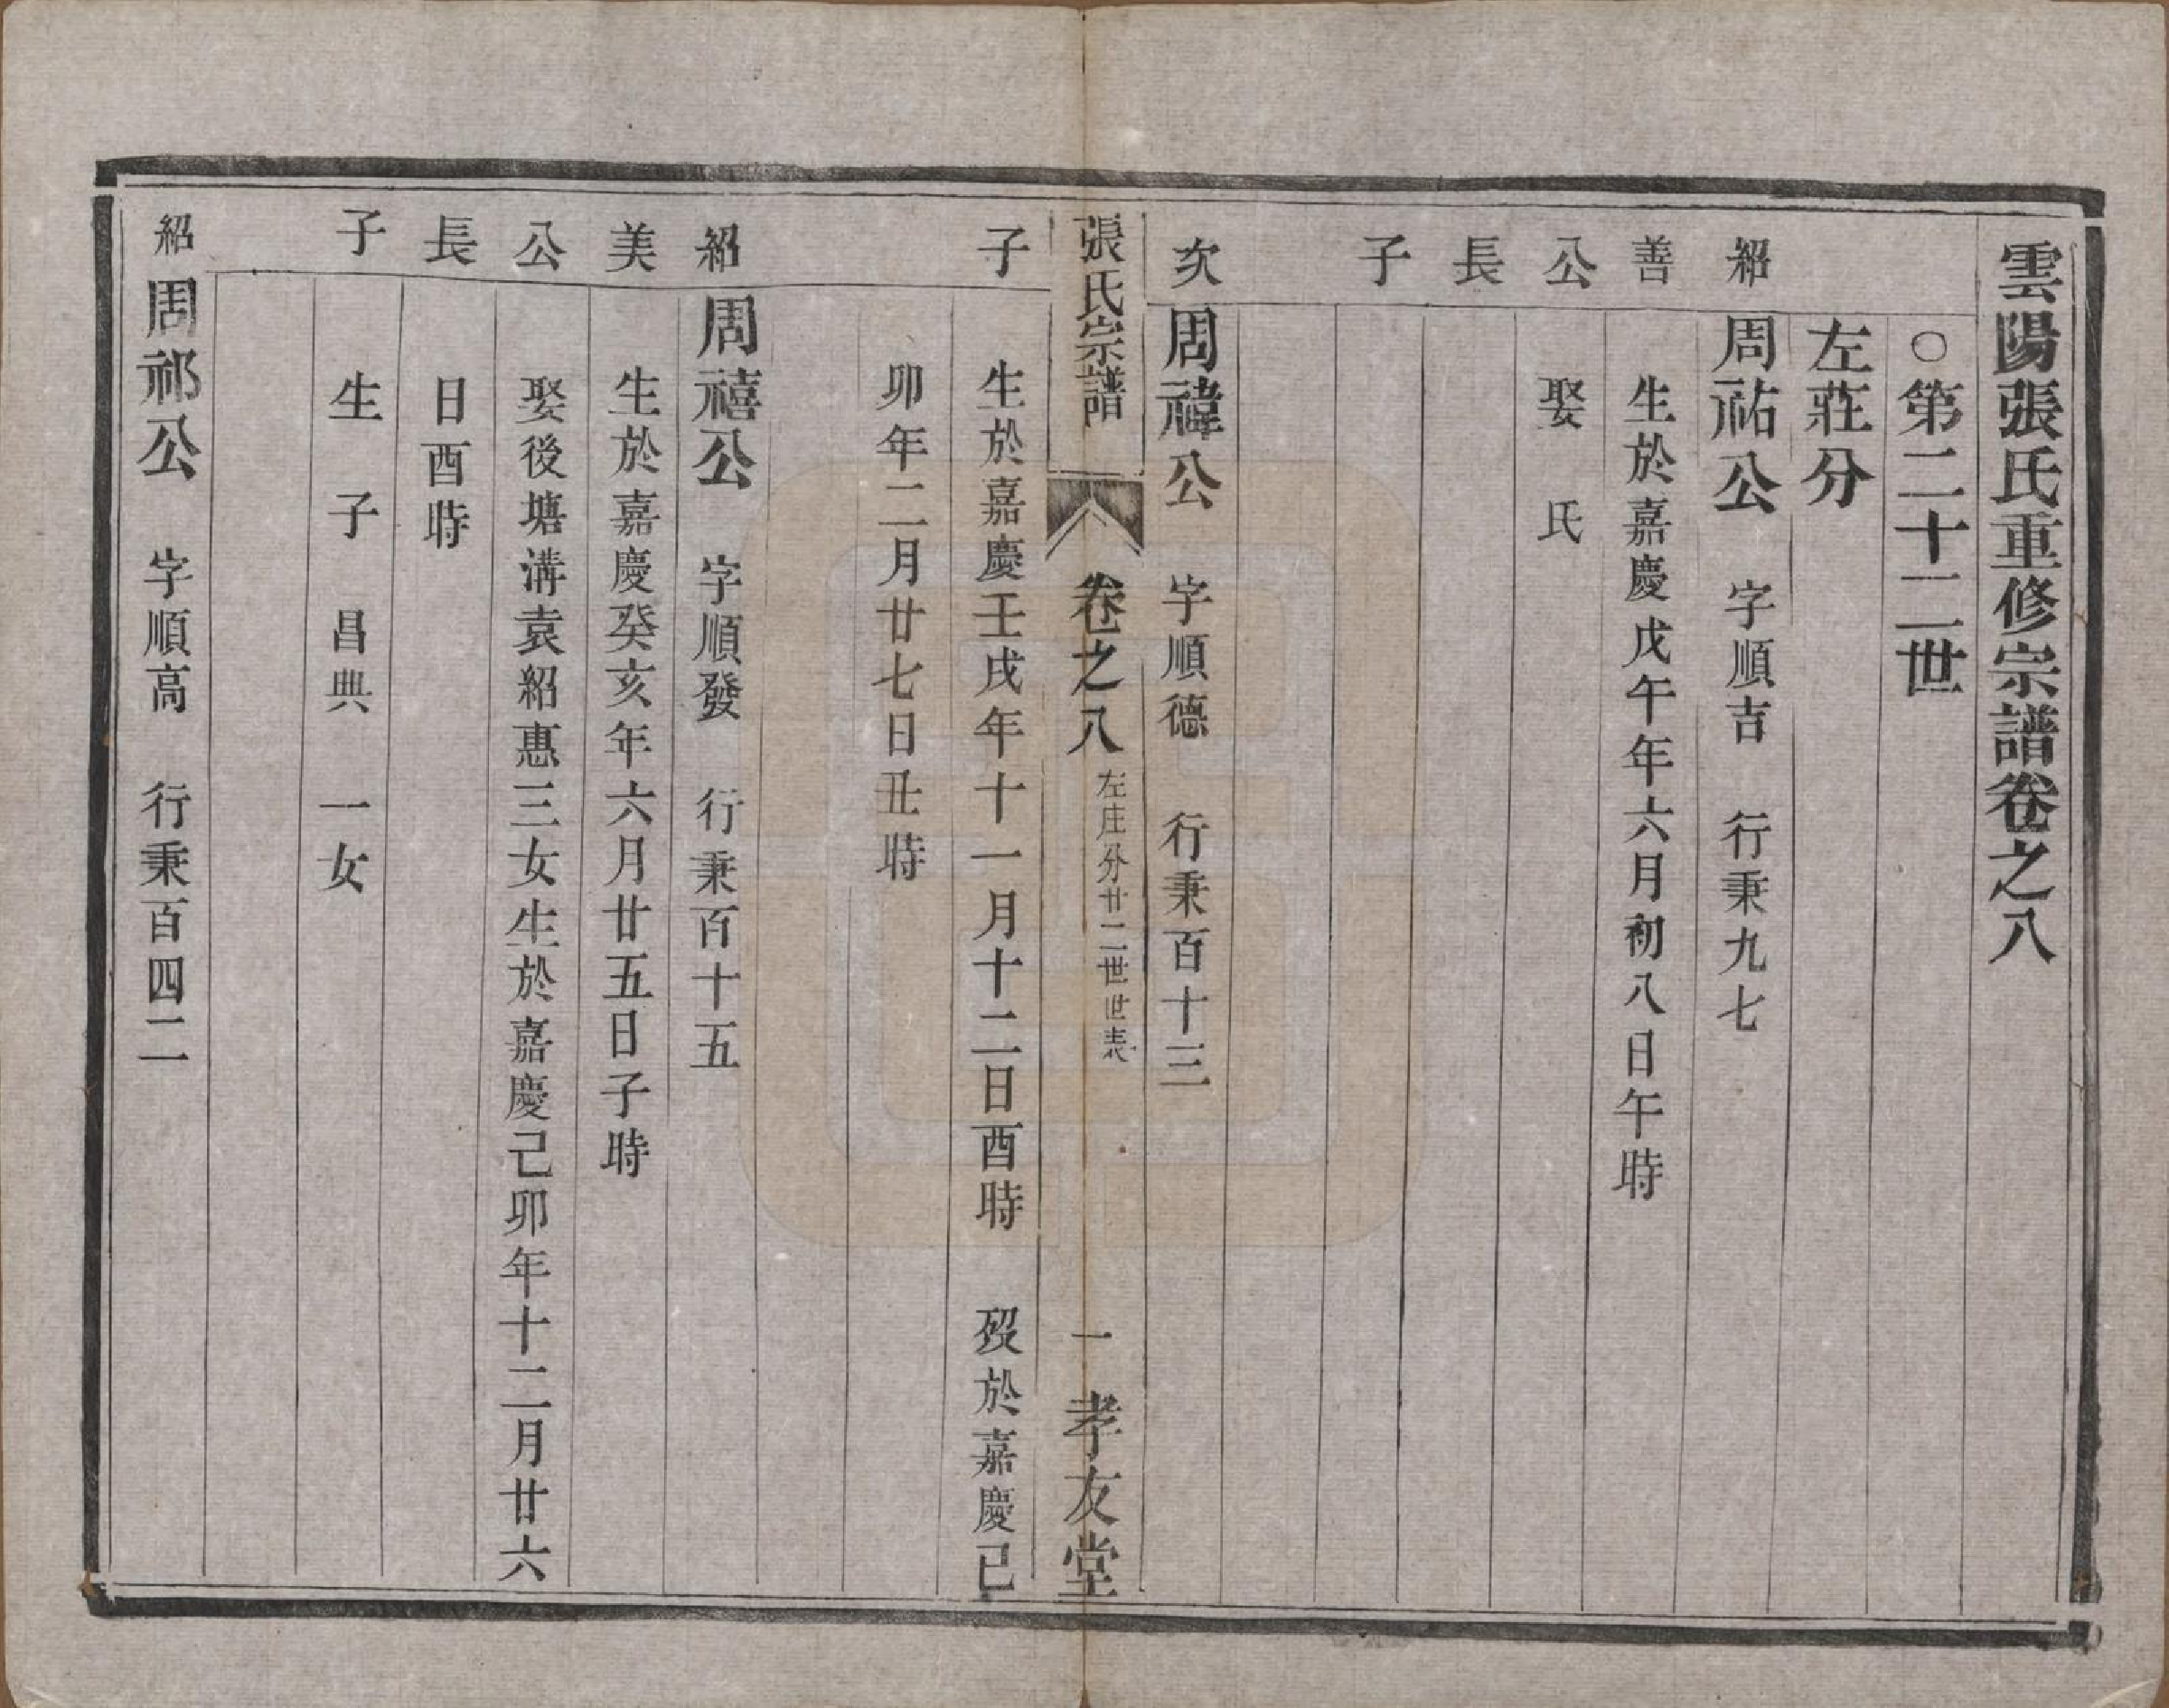 雲陽張氏重修宗譜卷之八
○第二十二世
左莊分
紹善公長子
周祐公 字順吉 行秉九七
生於嘉慶戊午年六月初八日午時
娶 氏
次子
周禕公 字順德 行秉百十三
張氏宗譜 卷之八 左庄分廿二世世表 一 孝友堂
生於嘉慶壬戌年十一月十二日酉時 歿於嘉慶己
卯年二月廿七日丑時
紹美公長子
周禧公 字順發 行秉百十五
生於嘉慶癸亥年六月廿五日子時
娶後塘溝袁紹惠三女生於嘉慶己卯年十二月廿六
日酉時
生子 昌典 一女
紹
周祁公 字順高 行秉百四二